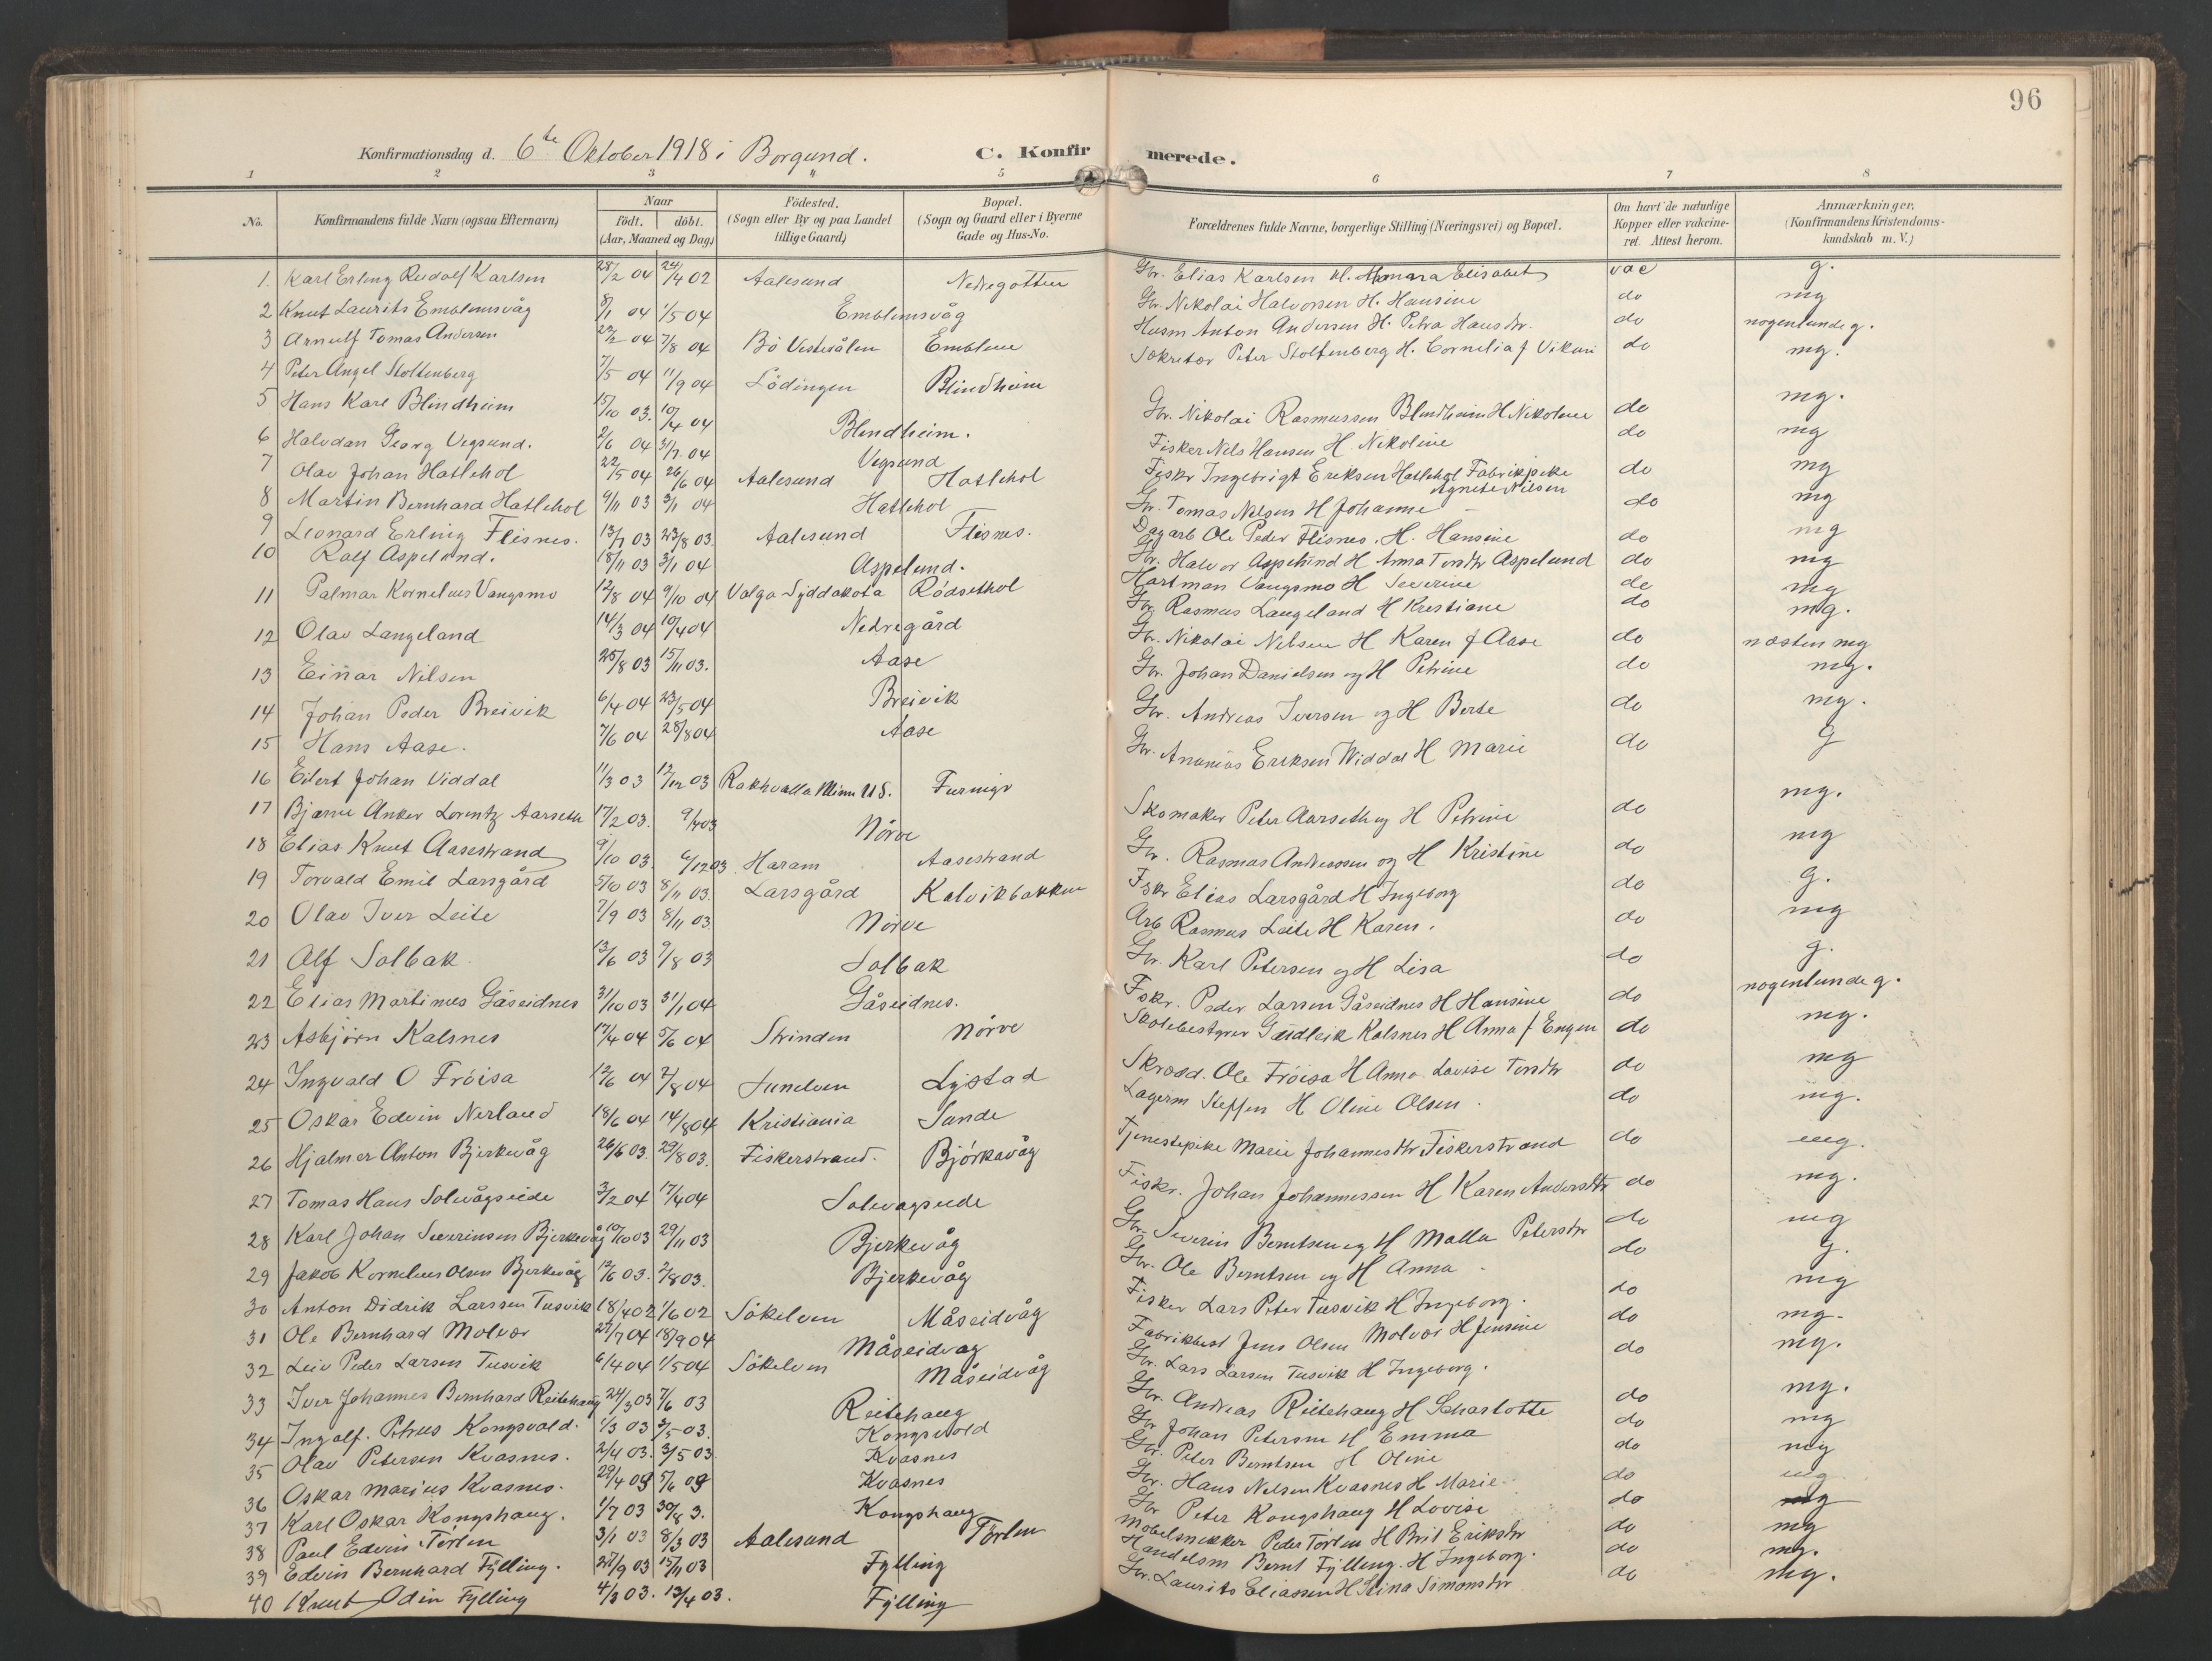 96
Konfirmationsdag d. 6te Oktober 1918 i Borgund. C. Konfirmerede.
1 2 3 4 5 6 7 8
No. Konfirmandens fulde Navn (ogsaa Efternavn) Naar födt. döbt. (Aar, Maaned og Dag) Födested. (Sogn eller By og paa Landet tillige Gaard) Bopæl. (Sogn og Gaard eller i Byerne Gade og Hus-No. Forældrenes fulde Navne, borgerlige Stilling (Næringsvei) og Bopæl. Om havt de naturlige Kopper eller vakcineret. Attest herom. Anmærkninger. (Konfirmandens Kristendomskundskab m. V.)
1. Karl Erling Rudolf Karlsen 28/2 04 24/4 02 Aalesund Nedregotten Gbr. Elias Karlsen H. Elisabet vac g.
2 Knut Laurits Emblemsvåg 8/1 04 1/5 04 Emblemsvåg Gbr. Nikolai Halvorsen H. Hansine do mg
3 Arnulf Tomas Andersen 22/2 04 7/8 04 Bö Vesterålen Emblem Husm Anton Andersen H. Petra Hansdtr. do nogenlunde g.
4 Peter Angel Stoltenberg 7/5 04 11/9 04 Lödingen Blindheim Sekretær Peter Stoltenberg H. Cornelia f Viken do mg.
5 Hans Karl Blindheim 15/10 03. 10/4 04 Blindheim. Gbr. Nikolai Rasmussen Blindheim H Nikoline do mg.
6 Halvdan Georg Vegsund. 2/6 04 31/7 04 Vegsund Fisker Nils Hansen H. Nikoline do mg
7 Olav Johan Hatlehol 22/5 04 26/6 04 Aalesund Hatlehol Fisker Ingebrigt Eriksen Hatlehol Fabrikpike Agnete Nilsen do mg
8 Martin Bernhard Hatlehol 9/11 03 3/1 04 Hatlehol Gbr. Tomas Nilsen H Johanne do mg
9 Leonard Erling Flisnes. 13/7 03 23/8 03. Aalesund Flisnes. Dagarb Ole Peder Flisnes. H. Hansine do mg
10 Rolf Aspelund. 18/11 03 3/1 04 Aspelund. Gbr. Halvor Aspelund H Anna Torsdtr Aspelund do mg
11 Palmar Kornelius Vangsmo 12/8 04 9/10 04 Volga Syddakota Rödsethol Hartman Vangsmo H Severine do mg
12 Olav Langeland 14/3 04 10/4 04 Nedregård Gbr Rasmus Langeland H Kristiane do mg.
13 Einar Nilsen 25/8 03 15/11 03. Aase Gbr. Nikolai Nilsen H Karen f Aase do næsten mg
14 Johan Peder Breivik 6/4 04 23/5 04 Breivik Gbr. Johan Danielsen og H Petrine do mg.
15 Hans Aase. 7/6 04 28/8 04 Aase Gbr. Andreas Iversen og H Berte do mg.
16 Eilert Johan Viddal 11/3 03 12/12 03 Rokhvalla Minn US. Furmyr Gbr. Ananias Eriksen Widdal H Marie do g
17 Bjarne Anker Lorentz Aarseth 17/2 03. 9/4 03 Nörve Skomaker Peter Aarseth og H Petrine do mg.
18 Elias Knut Aasestrand 9/10 03. 6/12 03. Haram Aasestrand Gbr. Rasmus Andreassen og H Kristine do mg
19 Torvald Emil Larsgård 5/10 03 8/11 03. Larsgård Kalvikbakken Fskr Elias Larsgård H Ingeborg do g.
20 Olav Iver Leite 7/9 03 8/11 03. Nörve Arb Rasmus Leite H Karen. do mg
21 Alf Solbak 13/6 03 9/8 03 Solbak Gbr. Karl Petersen og H Lisa do g.
22 Elias Martinus Gåseidnes 31/10 03 31/1 04 Gåseidnes. Fskr. Peder Larsen Gåseidnes H Hansine do nogenlunde g.
23 Asbjörn Kalsnes 17/4 04 5/6 04 Strinden Nörve Skolebestyrer Gudleik Kalsnes H Anna f Engen do mg.
24 Ingvald O Fröisa 12/6 04 7/8 04 Sunelven Lystad Skræd. Ole Fröisa H Anna Lovise Torsdtr do mg
25 Oskar Edvin Nerland 18/6 04 14/8 04 Kristiania Sunde Lagerm Steffen H Oline Olsen. do mg.
26 Hjalmer Anton Bjerkevåg 26/6 03. 29/8 03. Fiskerstrand. Björkavåg Tjenestepike Marie Johannesdtr Fiskerstrand do mg.
27 Tomas Hans Solevågseide 3/2 04 17/4 04 Solevagseide Fiskr. Johan Johannessen H Karen Andersdtr do mg.
28 Karl Johan Severinsen Bjerkevåg 10/10 03 29/11 03 Bjerkevåg Gbr. Severin Berntsen og H Malla Petersdtr do mg
29 Jakob Kornelius Olsen Bjerkevåg 12/6 03. 2/8 03. Bjerkevåg Gbr. Ole Berntsen og H Anna do g.
30 Anton Didrik Larssen Tusvik 18/4 02 1/6 02 Sökelven Måseidvåg Fisker Lars Peter Tusvik H Ingeborg. do mg
31 Ole Bernhard Molvær 27/7 04 18/9 04 Måseidvåg Fabrikbest Jens Olsen Molvær H Jensine do mg.
32 Leiv Peder Larsen Tusvik 6/4 04 1/5 04 Sökelven Måseidvåg Gbr. Lars Larsen Tusvik H Ingeborg. do mg.
33 Iver Johannes Bernhard Reitehaug 24/3 03 7/6 03 Reitehaug Gbr. Andreas Reitehaug H Scharlotte do mg.
34 Ingolf. Petrus Kongsvold. 1/3 03 3/5 03. Kongsvold Gbr Johan Petersen H Emma do mg
35 Olav Petersen Kvasnes. 2/4 03. 3/5 03 Kvasnes Gbr. Peter Berntsen H Oline do mg
36 Oskar Marius Kvasnes. 29/4 03 5/6 03 Kvasnes Gbr. Hans Nilsen Kvasnes H Marie do mg
37 Karl Oskar Kongshaug. 1/7 03 30/8 3. Kongshaug Gbr Peter Kongshaug H Lovise do mg
38 Paul Edvin Törlen 3/1 03 8/3 03 Aalesund Törlen Möbelsnekker Peder Törlen H Brit Eriksdtr do mg
39 Edvin Bernhard Fylling. 27/9 03 15/11 03 Fylling Handelsm Bernt Fylling. H Ingeborg. do mg.
40 Knut Odin Fylling 4/3 03. 13/4 03. Fylling Gbr. Laurits Eliassen H Stina Simonsdtr do mg.